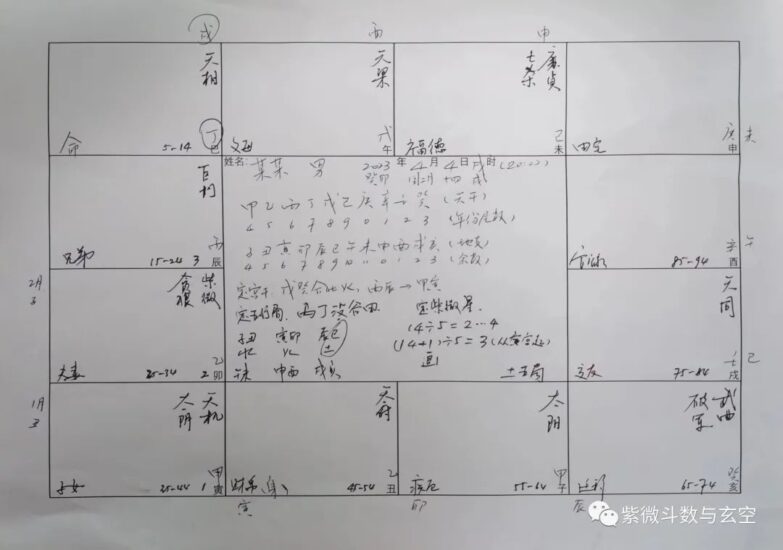 戌 丙 申
天相
命 5-14 丁 巳
天梁
父母 戊 午
廉贞
七杀
福德 己 未
田宅 庚 申 未
姓名: 某某 男 2023年4月4日戌时(20:22)
癸卯 闰二月 十四 戌
甲乙丙丁戊己庚辛壬癸 (天干)
4 5 6 7 8 9 0 1 2 3 (年份尾数)
子丑寅卯辰巳午未申酉戌亥 (地支)
4 5 6 7 8 9 10 11 0 1 2 3 (余数)
定宫干: 戊癸合化火, 丙辰→甲寅
定五行局, 定紫微星
子丑 寅卯 辰巳
水 火 土
午未 申酉 戌亥
14÷5=2…4
(14+1)÷5=3(从寅宫起)
土五局
巨门
兄弟 15-24 3 丙 辰
官禄 85-94 辛 酉 午
2月
紫微
贪狼
夫妻 25-34 2 乙 卯
天同
交友 75-84 壬 戌 巳
1月
天机
太阴
子女 35-44 1 甲 寅
天府
财帛(身) 45-54 乙 丑
寅
太阳
疾厄 55-64 甲 子
卯
武曲
破军
迁移 65-74 癸 亥
辰
紫微斗数与玄空